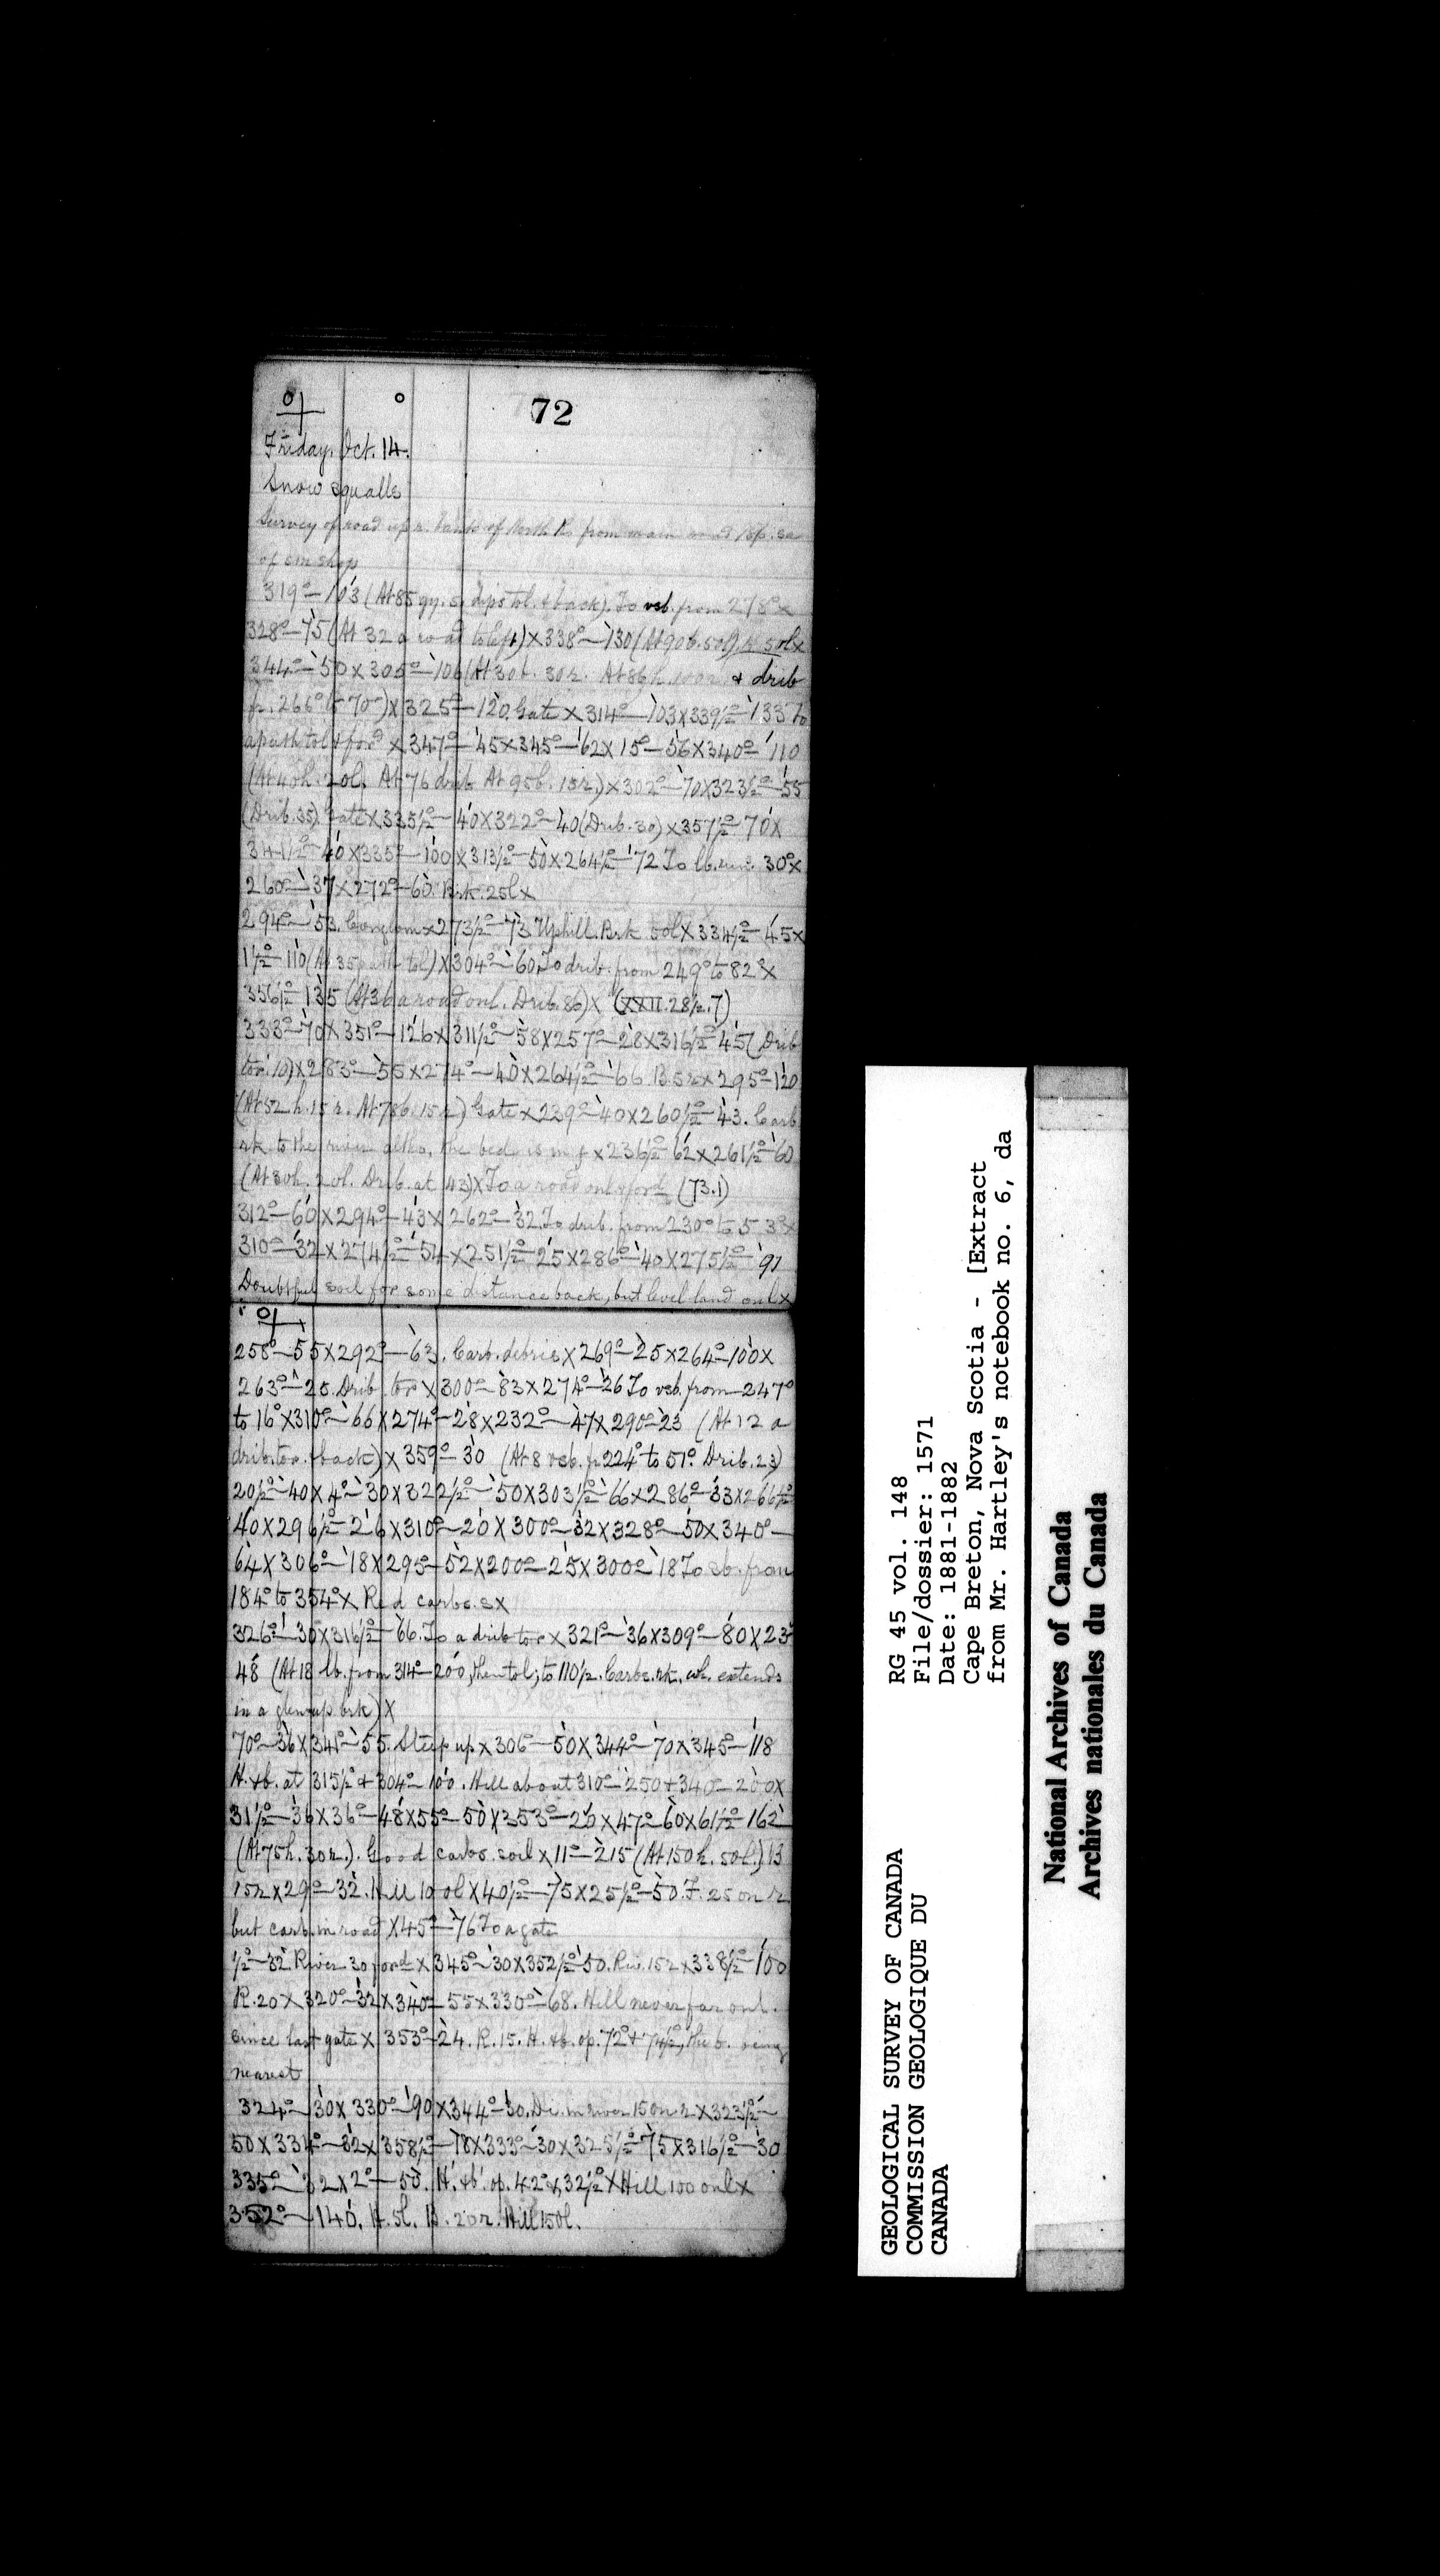 72
Friday, Oct. 14.
Snow squalls
Survey of road up r. bank of North R. from main
of sm shop
319°–103 (At 85 gy. s. dips to l. & back). To vsb. from 278° x
328°–75 (At 32 a road to left) x 338°–130 (At 90 b. 50l). 50l x
344°–50 x 305°–106 (At 30 b. 30r. At 86 h. 100 r. & drib
fr. 266° to 70°) x 325°–120. Gate x 314°–103 x 339½°–133 To
a path to l & ford x 347°–45 x 345°–62 x 15°–56 x 340°–110
(At 40 h. 20l. At 76 drib. At 95 b. 15r.) x 302°–70 x 323½°–55
(Drib. 35). Gate x 335½°–40 x 322°–40 (Drib. 30) x 357½°–70 x
341½°–40 x 335°–100 x 313½°–50 x 264½°–72 To lb. 30° x
260°–37 x 272°–60. Brk. 25l x
294°–53. Conglom x 273½°–73 Uphill. Brk 50l x 334½°–45 x
1½°–110 (At 35 path to l) x 304°–60. To drib. from 249° to 82° x
356½°–135 (At 36 a road on l. Drib. 86) x (XXII. 28½. 7)
333°–70 x 351°–126 x 311½°–58 x 257°–28 x 316½°–45 (Drib
to r. 10) x 283°–55 x 274°–40 x 264½°–66. B. 5r x 295°–120
(At 52 h. 15 r. At 78 b. 15 r) Gate x 239°–40 x 260½°–43. Carb.
rk to the river altho. the bed is in f x 236½°–62 x 261½°–60
(At 30 h. 20l. Drib. at 43) x To a road on l & ford (73.1)
312°–60 x 294°–43 x 262°–32. To drib. from 230° to 53° x
310°–32 x 274½°–54 x 251½°–25 x 286°–40 x 275½°–91
Doubtful soil for some distance back, but level land on l x
258°–55 x 292°–63. Carb. debris x 269°–25 x 264°–100 x
263°–25. Drib. to r x 300°–83 x 274°–26 To vsb. from 247°
to 16° x 310°–66 x 274°–28 x 232°–47 x 290°–23 (At 12 a
drib. to r. & back) x 359°–30 (At 8 vsb. fr 224° to 51°. Drib. 23)
20½°–40 x 4°–30 x 322½°–50 x 303½°–66 x 286°–33 x 266½°
40 x 296½°–26 x 310°–20 x 300°–32 x 328°–50 x 340°–
64 x 306°–18 x 295°–52 x 200°–25 x 300°–18 To sb. from
184° to 354° x Red carbs. s x
326°–30 x 316½°–66. To a drib to r x 321°–36 x 309°–80 x 23°
48 (At 18 lb. from 314°–200, then to l, to 110½. Carbs. rk. wh. extends
in a glen up brk) x
70°–36 x 341°–55. Steep up x 306°–50 x 344°–70 x 345°–118
H. & b. at 315½° & 304°–100. Hill about 310°–250 & 340°–200 x
31½°–36 x 36°–48 x 55°–50 x 353°–26 x 47°–60 x 61½°–162
(At 75 h. 30r.). Good carbs. soil x 11°–215 (At 150 h. 50l.) B
15r x 29°–32. Hill 100l x 40½°–75 x 25½°–50. F. 25 on r.
but carb. in road x 45°–76 To a gate
½°–32 River 30 ford x 345°–30 x 352½°–50. Riv. 15r x 338½°–100
R. 20 x 320°–32 x 340°–55 x 330°–68. Hill never far on l.
since last gate x 353°–24. R. 15. H. & b. op. 72° & 74½°, the b. being
nearest
324°–30 x 330°–90 x 344°–30. in river 15 on r x 323½°–
50 x 334°–82 x 358½°–18 x 333°–30 x 325½°–75 x 316½°–30
335°–32 x 2°–50. H. & b. op. 42° & 32½° x Hill 100 on l x
352°–140. H. 5l. B. 20r. Hill 150l.
GEOLOGICAL SURVEY OF CANADA
COMMISSION GEOLOGIQUE DU
CANADA
RG 45 vol. 148
File/dossier: 1571
Date: 1881-1882
Cape Breton, Nova Scotia - [Extract
from Mr. Hartley's notebook no. 6, da
National Archives of Canada
Archives nationales du Canada